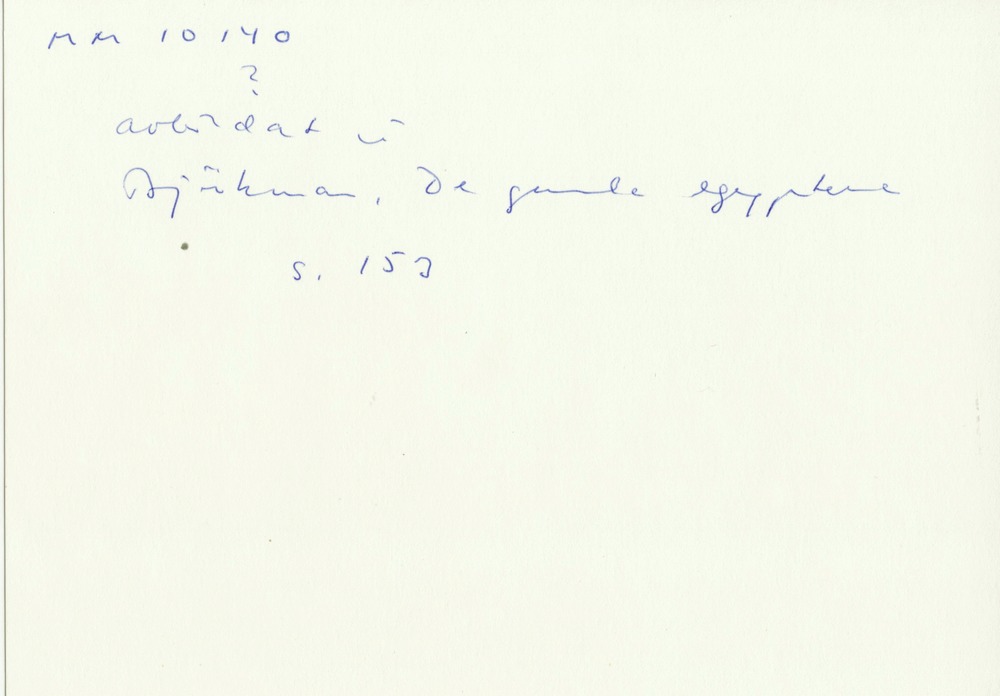 MM 10140
?
avbildat i
Björkman, De gamla egyptierna
s. 153